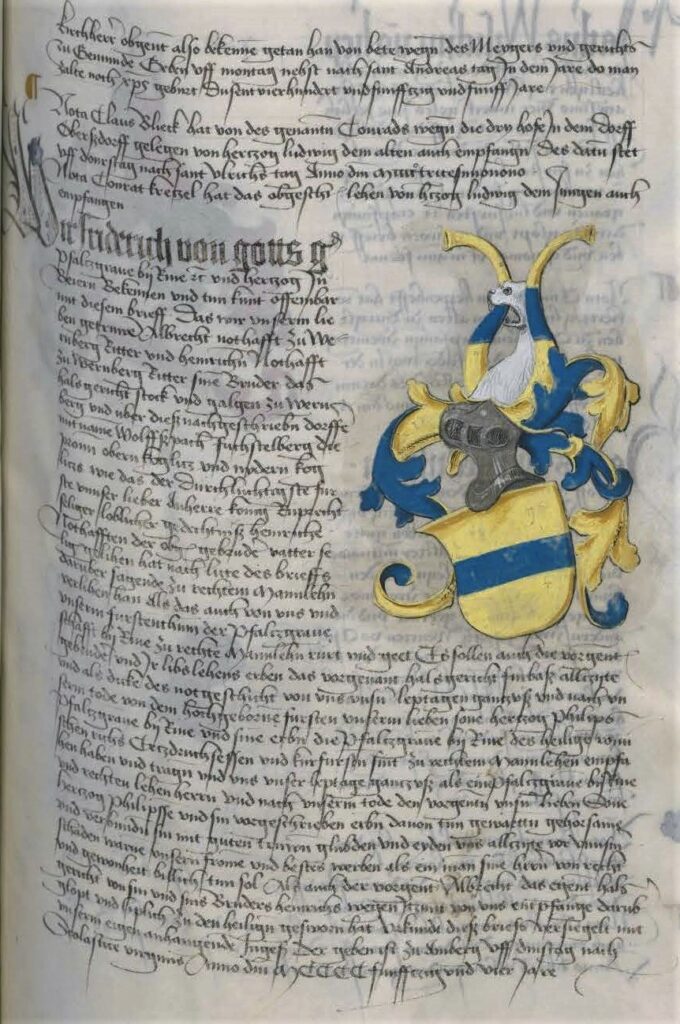 kirchherr obgent also bekenne getan han von bete wegn des Meygers und gerichts
zu Gemunde Geben uff montag nehst nach sant Andreas tag In dem Jare do man
zalte noch xps geburt Dusent vierhundert und funfftzig und funff Jare
Nota Claus Bleck hat von des genantn Conrads wegn die dry hofe In dem dorff
gelegen von hertzog ludwig dem alten auch empfangn Des datu stet
uff donrstag nach sant ulrichs tag Anno dm tricesimonono
Nota Conrat kretzel hat das obgeschr lehen von htzog ludwig dem Jungen auch
empfangen
Wir friderich von gotts g
Pfaltzgrave by Rine zc und hertzog In
Beiern Bekennen und tun kunt offembar
mit diesem brieff Das wir unserm lie
ben getruwe Albrecht nothafft zu We
rnberg Ritter und heinrichn Nothafft
zu wernberg Ritter sine Bruder das
halsgericht stock und galgen zu wern
berg und uber dieß nachgeschriebn dorffe
mit name Wolffspach fuchstelberg die
obern koglitz und nydern kog
litz wie das der durchluchtigste fur
ste unser lieber Anherre konig Ruprecht
seliger loblicher gedechtniß heinriche
Nothafften der obg gebrude vatter se
lig gelihen hat nach lute des brieffs
daruber sagende zu rechtem Mannlehn
verliben han Als das auch von uns und
unserm furstenthum der Pfaltzgrave
schafft by Rine zu rechte Mannlehn rurt und geet Es sollen auch die vorgent
gebrude und Ir libslehens erben das vorgenant halsgericht furbaß alltzyte
und als dicke des not geschicht von uns unsn leptagen gantz uß und nach un
serm tode von dem hochgeborne fursten unserm lieben sone hertzog Philips
Pfaltzgrave by Rine und sine erbn die Pfaltzgrave by Rine des heilige romi
schen richs Ertzdruchsessen und kurfursen sint zu rechtem Mannlehen empfa
hen haben und tragn und uns unser leptage gantz uß als ein Pfaltzgrave by Rine
und rechten lehen herrn und nach unserm tode den vorgentn unsn lieben Sone
hertzog Philipsse und sin vorgeschrieben erbn davon tun gewarttn gehorsame
und verbundn sin mit guten truwen glubden und eyden uns alltzyte vor unsin
schaden warne unsern frome und bestes werben als ein man sine hrn von recht
und gewonheit billich tun sol Als auch der vorgent Albrecht das egent hals
gericht von sin und sins Bruders heinrichs wegen itzunt von uns entpfange darub
glopt und liplich zu den heilign gesworn hat urkunde dieß brieffs versiegelt mit
unserm eigen anhangende Ingeß Der geben ist zu Amberg uff dinstag nach
Scolastice virginis Anno dm MCCCC funfftzig und vier Jare